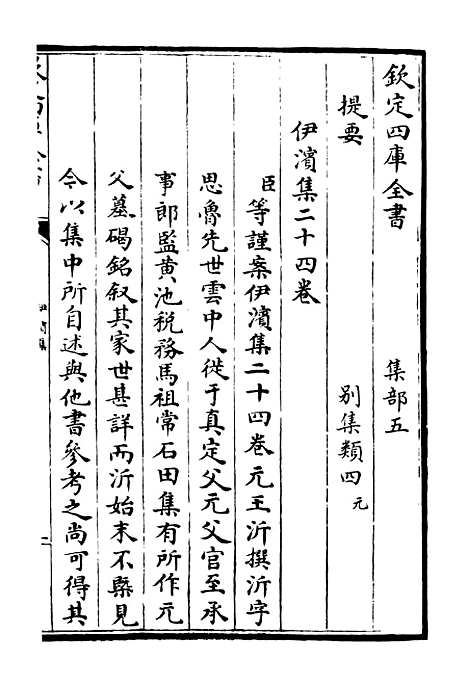 欽定四庫全書　集部五
提要　別集類四元
伊濱集二十四卷
臣等謹案伊濱集二十四卷元王沂撰沂字
思魯先世雲中人徙于真定父元父官至承
事郎監黄池税務馬祖常石田集有所作元
父墓碣銘叙其家世甚詳而沂始末不槩見
今以集中所自述與他書參考之尚可得其